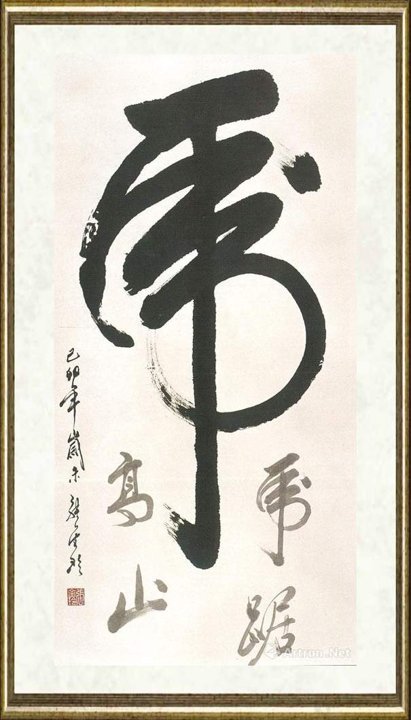 虎
虎踞
高山
己卯年歲末
Artron.Net